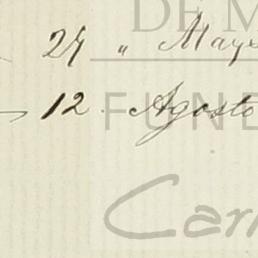 DE M
24 " Mayo
12 Agosto
FUNE
Car